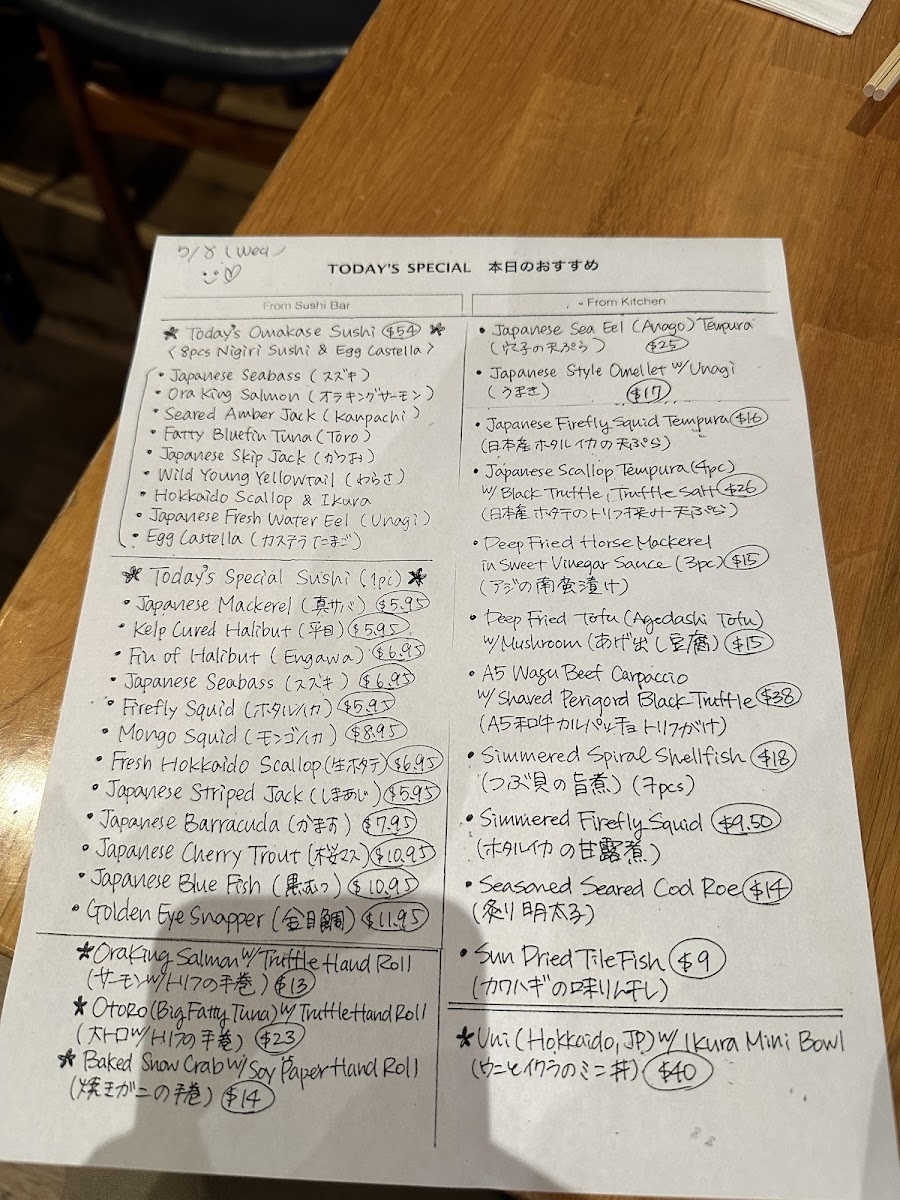 5/8 (Wed)
TODAY'S SPECIAL 本日のおすすめ
From Sushi Bar
★ Today's Omakase Sushi $54 ★
<8pcs Nigiri Sushi & Egg Castella>
• Japanese Seabass (スズキ)
• Ora King Salmon (オラキングサーモン)
• Seared Amber Jack (Kanpachi)
• Fatty Bluefin Tuna (Toro)
• Japanese Skip Jack (かつお)
• Wild Young Yellowtail (わらさ)
• Hokkaido Scallop & Ikura
• Japanese Fresh Water Eel (Unagi)
• Egg Castella (カステラたまご)
★ Today's Special Sushi (1pc) ★
• Japanese Mackerel (真サバ) $5.95
• Kelp Cured Halibut (平目) $5.95
• Fin of Halibut (Engawa) $6.95
• Japanese Seabass (スズキ) $6.95
• Firefly Squid (ホタルイカ) $5.95
• Mongo Squid (モンゴイカ) $8.95
• Fresh Hokkaido Scallop (生ホタテ) $6.95
• Japanese Striped Jack (しまあじ) $5.95
• Japanese Barracuda (かます) $7.95
• Japanese Cherry Trout (桜マス) $10.95
• Japanese Blue Fish (黒むつ) $10.95
• Golden Eye Snapper (金目鯛) $11.95
★ Ora King Salmon w/ Truffle Hand Roll
(サーモンw/トリフの手巻) $13
★ Otoro (Big Fatty Tuna) w/ Truffle Hand Roll
(大トロw/トリフの手巻) $23
★ Baked Snow Crab w/ Soy Paper Hand Roll
(焼きガニの手巻) $14
- From Kitchen
• Japanese Sea Eel (Anago) Tempura
(穴子の天ぷら) $25
• Japanese Style Omellet w/ Unagi
(うまき) $17
• Japanese Firefly Squid Tempura $16
(日本産ホタルイカの天ぷら)
• Japanese Scallop Tempura (4pc)
w/ Black Truffle, Truffle Salt $26
(日本産ホタテのトリフ天ぷら)
• Deep Fried Horse Mackerel
in Sweet Vinegar Sauce (3pc) $15
(アジの南蛮漬け)
• Deep Fried Tofu (Agedashi Tofu)
w/ Mushroom (あげ出し豆腐) $15
• A5 Wagu Beef Carpaccio
w/ Shaved Perigord Black Truffle $38
(A5和牛カルパッチョトリフがけ)
• Simmered Spiral Shellfish $18
(つぶ貝の旨煮) (7pcs)
• Simmered Firefly Squid $9.50
(ホタルイカの甘露煮)
• Seasoned Seared Cod Roe $14
(炙り明太子)
• Sun Dried Tile Fish $9
(カワハギの味りん干し)
★ Uni (Hokkaido, JP) w/ Ikura Mini Bowl
(ウニとイクラのミニ丼) $40